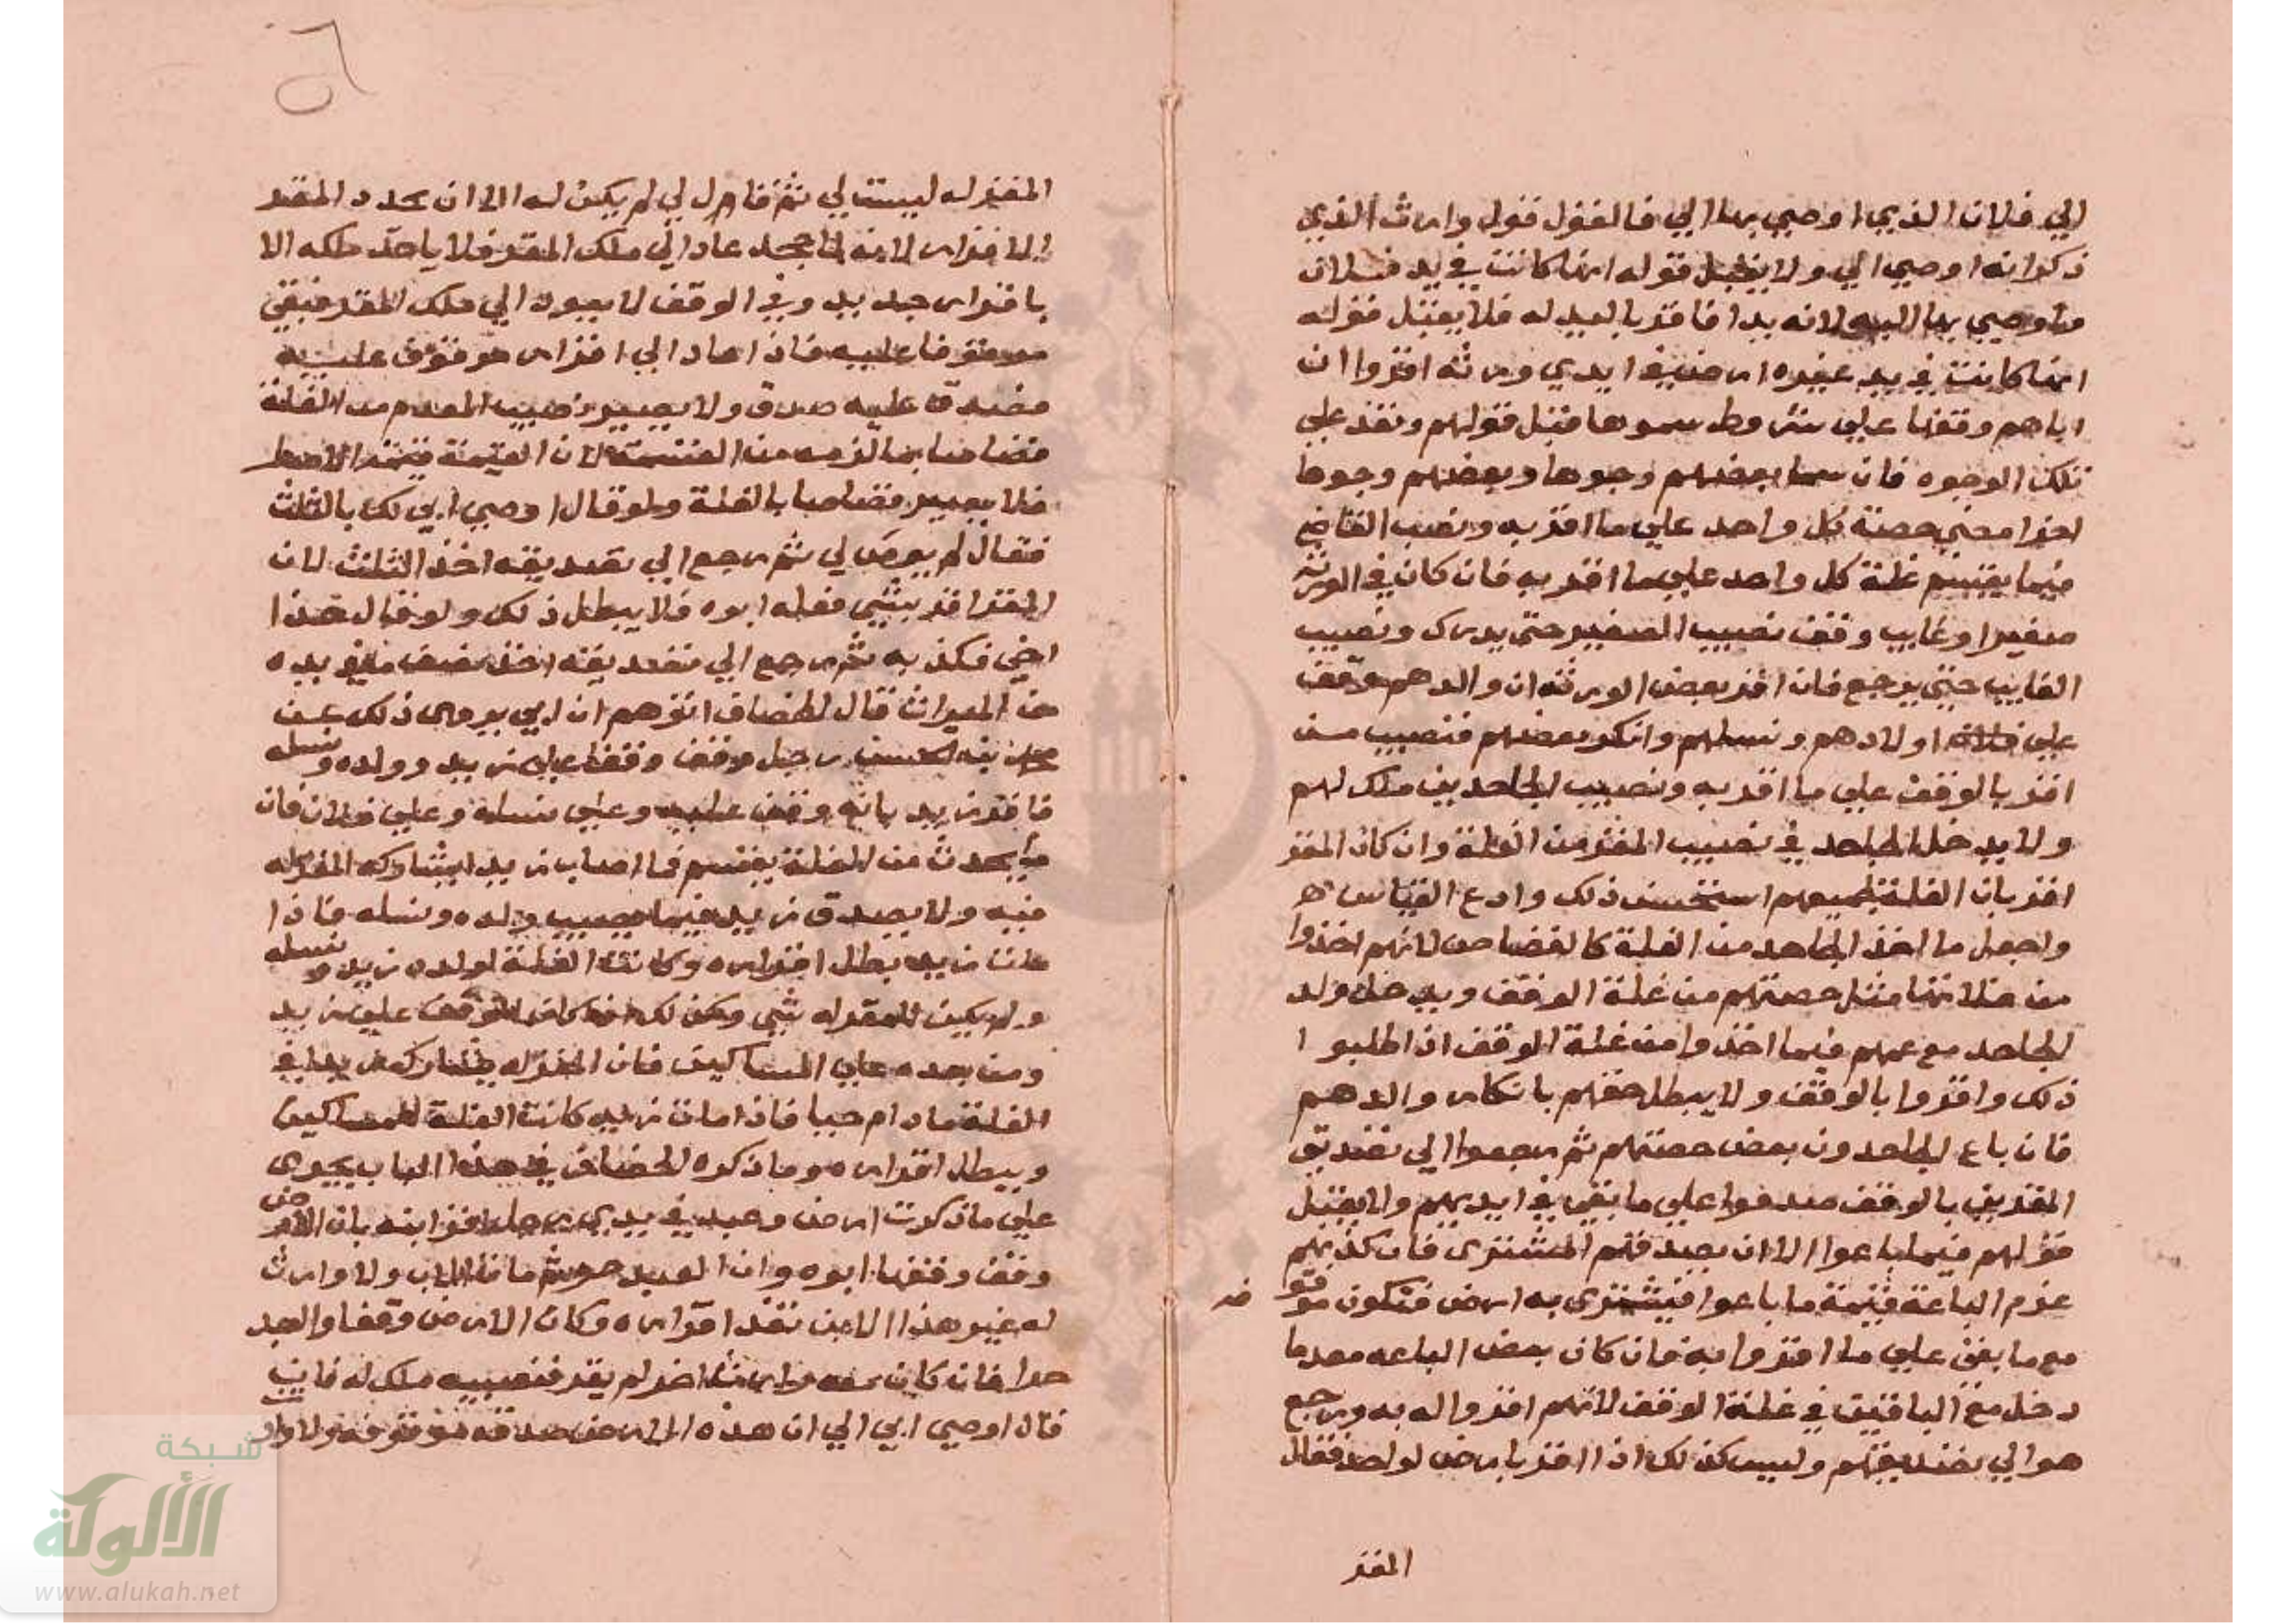 الي فلان الذي اوصي بها الي فالقول قول وارث الذي
ذكر انه اوصي الي ولا يقبل قوله انها كانت في يد فلان
اوصي بها اليه لانه بدا فاقر باليد له فلا يقبل قوله
انها كانت في يد غيره ارض في ايدي ورثه اقروا ان
اباهم وقفها علي شروط سموها قبل قولهم ونفذ علي
تلك الوجوه فان سما بعضهم وجوها وبعضهم وجوها
اخرا مضي حصة كل واحد علي ما اقر به ونصب القاضي
فيما يقسم غلة كل واحد علي ما اقر به فان كان في الورثه
صغير او غايب وقف نصيب الصغير حتي يدرك ونصيب
الغايب حتي يرجع فان اقر بعض الورثه ان والدهم وقف
علي اولادهم ونسلهم وانكر بعضهم فنصيب من
اقر بالوقف علي ما اقر به ونصيب الجاحدين ملك لهم
ولا يدخل الجاحد في نصيب المقر من الغلة وان كان المقر
اقر بان الغلة لجميعهم استحسن ذلك وادع القياس
واجعل ما اخذ الجاحد من الغلة كالقصاص لانهم اخذوا
من مثل حصتهم من غلة الوقف ويدخل ولد
الجاحد مع عمهم فيما اخذوا من غلة الوقف ان اطلبوا
ذلك واقروا بالوقف ولا يبطل حقهم بانكار والدهم
فان باع الجاحدون بعض حصتهم ثم رجعوا الي تصديق
المقرين بالوقف صدقوا علي ما بقي في ايديهم ولا يقبل
قولهم فيما باعوا الا ان يصدقهم المشتري فان كذبهم
غرم الباعة قيمة ما باعوا فيشتري به ارض فتكون موقوفه
مع ما بقي علي ما اقروا به فان كان بعض الباعه معدما
دخل مع الباقين في غلة الوقف لانهم اقروا له به ورجع
هو الي تصديقهم وليس كذلك اذا اقر بارض لواحد فقال
المقر
المقر له ليست لي ثم قال لي لم يكن له الا ان يجدد المقر
الاقرار لانه لما جحد عاد الي ملك المقر فلا ياخذ ملكه الا
باقرار جديد وفي الوقف لا يعود الي ملك المقر فبقي
موقوفا عليه فاذا عاد الي اقرار هو موقوف عليه
صدق ولا يصير نصيب المعدم من الغلة
قصاصا بما لزمه من القيمة لان القيمة
فلا يصير قصاصا بالغلة ولو قال اوصي ابي لك بالثلث
فقال لم يوص لي ثم رجع الي تصديقه اخذ الثلث لان
المقر اقر بشي فعله ابوه فلا يبطل ذلك ولو قال هذا
اخي فكذبه ثم رجع الي تصديقه اخذ نصف ما في يده
من الميراث قال الخصاف اتوهم ان ابي يروي ذلك عن
الحسن رجل وقف وقفا علي زيد وولده ونسله
فاقر زيد بانه وقف عليه وعلي نسله وعلي فلان فان
ما يحدث من الغلة يقسم فما اصاب زيد ايشاركه المقر له
فيه ولا يصدق زيد فيما يصيب ولده ونسله فاذا
مات زيد بطل اقراره وكانت الغلة لولد زيد ونسله
ولم يكن للمقر له شي وكذلك اذا كان الوقف علي زيد
ومن بعده علي المساكين فان المقر له يشارك زيد في
الغلة ما دام حيا فاذا مات زيد كانت الغلة للمساكين
ويبطل اقراره وما ذكره الخصاف في هذا الباب يجري
علي ما ذكرت ارض وعبد في يدي رجل اقر ابنه بان الارض
وقف وقفها ابوه وان العبد حر ثم مات الاب ولا وارث
له غير هذا الابن نفذ اقراره وكان الارض وقفا والعبد
حرا فان كان معه وارث اخر لم يقر فنصيبه ملك له فان
قال اوصي ابي الي ان هذه الارض صدقة موقوفه ولا وارث
شبكة
الألوكة
www.alukah.net